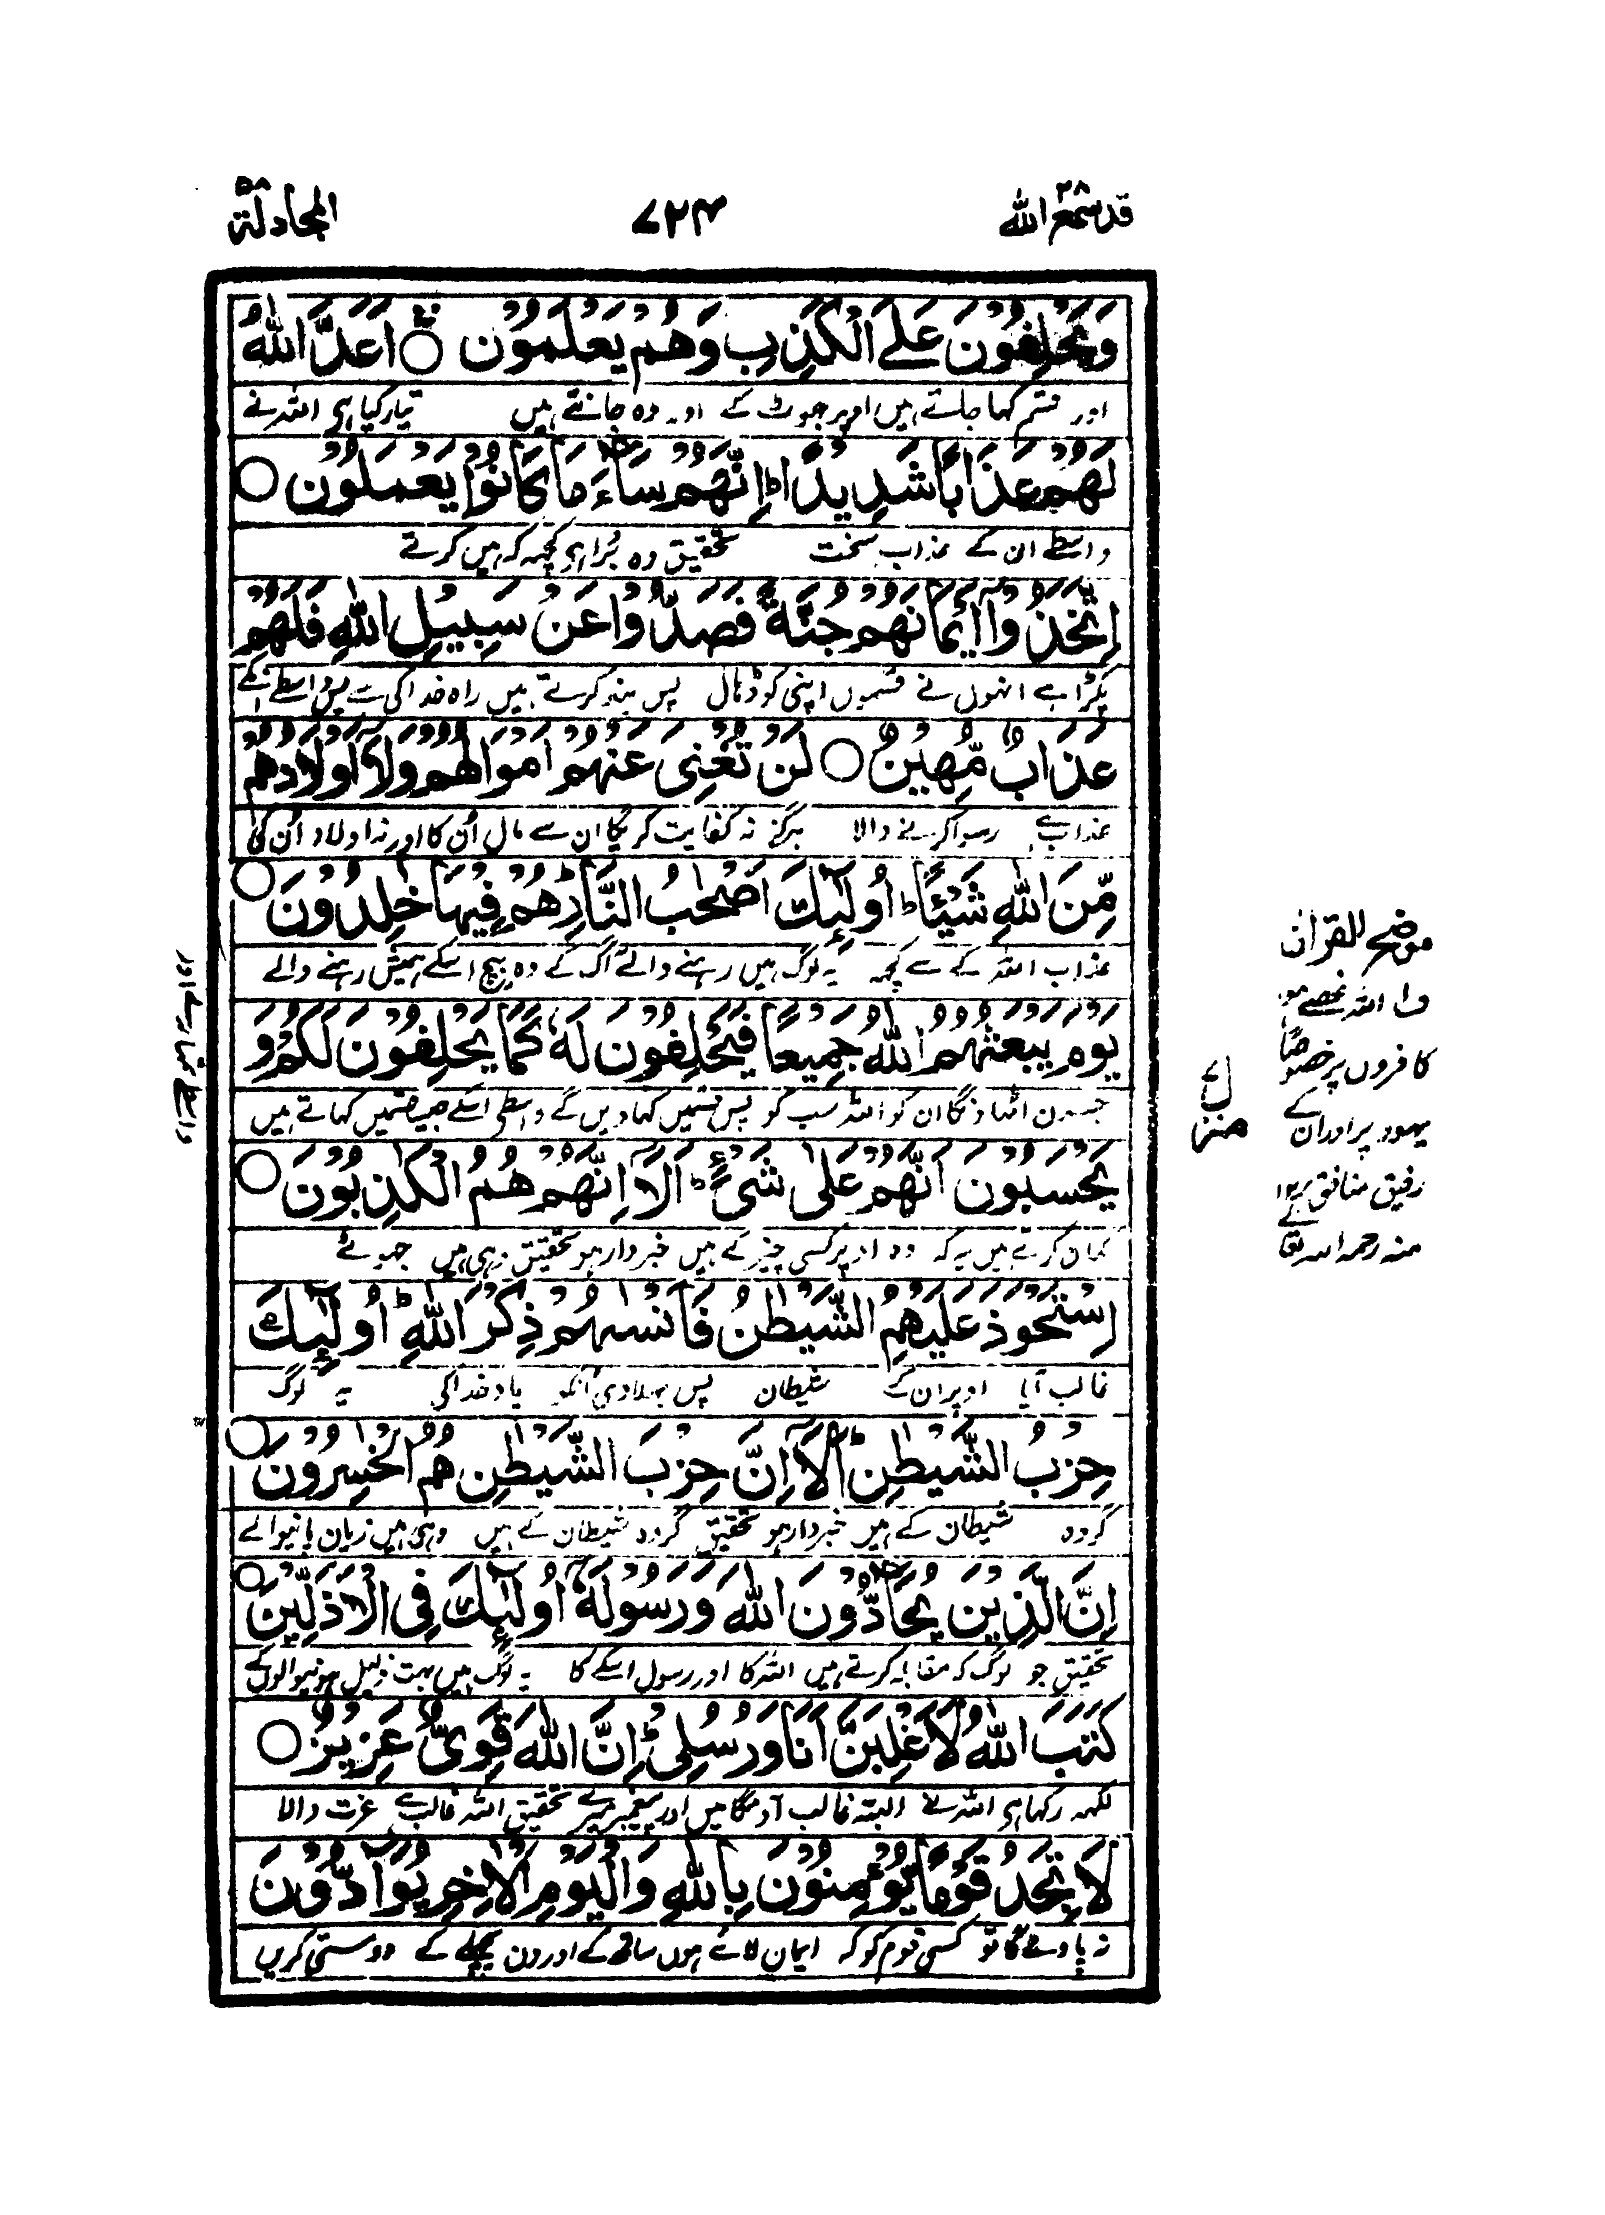 قد سمع الله ۲۸
۷۲۴
المجادلة ۵۸
وَيَحْلِفُوْنَ عَلَے الْكَذِبِ وَهُمْ يَعْلَمُوْنَ ○ اَعَدَّ اللّٰهُ
اور قسم کہا جاتے ہیں اوپر جھوٹ کے اور وہ جانتے ہیں تیار کیا ہی اللہ نے
لَهُمْ عَذَابًا شَدِيْدًا ؕ اِنَّهُمْ سَآءَ مَا كَانُوْا يَعْمَلُوْنَ ○
واسطے ان کے عذاب سخت تحقیق وہ بُرا ہی کچہہ کہ ہیں کرتے
اِتَّخَذُوْۤا اَيْمَانَهُمْ جُنَّةً فَصَدُّوْا عَنْ سَبِيْلِ اللّٰهِ فَلَهُمْ
پکڑا ہے انہوں نے قسموں اپنی کو ڈہال پس بند کرتے ہیں راہ خدا کی سے پس واسطے انکے
عَذَابٌ مُّهِيْنٌ ○ لَنْ تُغْنِىَ عَنْهُمْ اَمْوَالُهُمْ وَلَاۤ اَوْلَادُهُمْ
عذاب ہے رسوا کرنے والا ہرگز نہ کفایت کریگا ان سے مال اُن کا اور نہ اولاد اُن کی
مِّنَ اللّٰهِ شَيْئًا ؕ اُولٰٓئِكَ اَصْحٰبُ النَّارِ ؕ هُمْ فِيْهَا خٰلِدُوْنَ ○
عذاب اللہ کے سے کچہہ یہ لوگ ہیں رہنے والے آگ کے وہ بیچ اسکے ہمیش رہنے والے
يَوْمَ يَبْعَثُهُمُ اللّٰهُ جَمِيْعًا فَيَحْلِفُوْنَ لَهٗ كَمَا يَحْلِفُوْنَ لَكُمْ وَ
جسدن اٹھاویگا ان کو اللہ سب کو پس قسمیں کہاویں گے واسطے اسکے جیسے قسمیں کہاتے ہیں
يَحْسَبُوْنَ اَنَّهُمْ عَلٰى شَىْءٍ ؕ اَلَاۤ اِنَّهُمْ هُمُ الْكٰذِبُوْنَ ○
گمان کرتے ہیں یہ کہ وہ اوپر کسی چیز کے ہیں خبردار ہو تحقیق وہی ہیں جھوٹے
اِسْتَحْوَذَ عَلَيْهِمُ الشَّيْطٰنُ فَاَنْسٰىهُمْ ذِكْرَ اللّٰهِ ؕ اُولٰٓئِكَ
غالب آیا اوپر ان کے شیطان پس بہلادی اُنکو یاد خدا کی یہ لوگ
حِزْبُ الشَّيْطٰنِ ؕ اَلَاۤ اِنَّ حِزْبَ الشَّيْطٰنِ هُمُ الْخٰسِرُوْنَ ○
گروہ شیطان کے ہیں خبردار ہو تحقیق گروہ شیطان کے ہیں وہی ہیں زیان پانیوالے
اِنَّ الَّذِيْنَ يُحَآدُّوْنَ اللّٰهَ وَرَسُوْلَهٗۤ اُولٰٓئِكَ فِى الْاَذَلِّيْنَ ○
تحقیق جو لوگ کہ مقابلہ کرتے ہیں اللہ کا اور رسول اسکے کا یہ لوگ ہیں بہت ذلیل ہونیوالوں کے
كَتَبَ اللّٰهُ لَاَغْلِبَنَّ اَنَا وَرُسُلِىْ ؕ اِنَّ اللّٰهَ قَوِىٌّ عَزِيْزٌ ○
لکہہ رکہا ہی اللہ نے البتہ غالب آؤنگا میں اور پیغمبر میرے تحقیق اللہ غالب ہے عزت والا
لَا تَجِدُ قَوْمًا يُّؤْمِنُوْنَ بِاللّٰهِ وَالْيَوْمِ الْاٰخِرِ يُوَآدُّوْنَ
نہ پاوے گا تو کسی قوم کو کہ ایمان لائے ہوں ساتھ کے اور دن پچھلے کے دوستی کریں
واسطے تمہارے اور
منزل
موضح القرآن
ف۱ اللہ غصے ہوا
کافروں پر خصوصاً
یہود پر اور ان کے
رفیق منافق ۱۲
منہ رحمہ اللہ تعالے